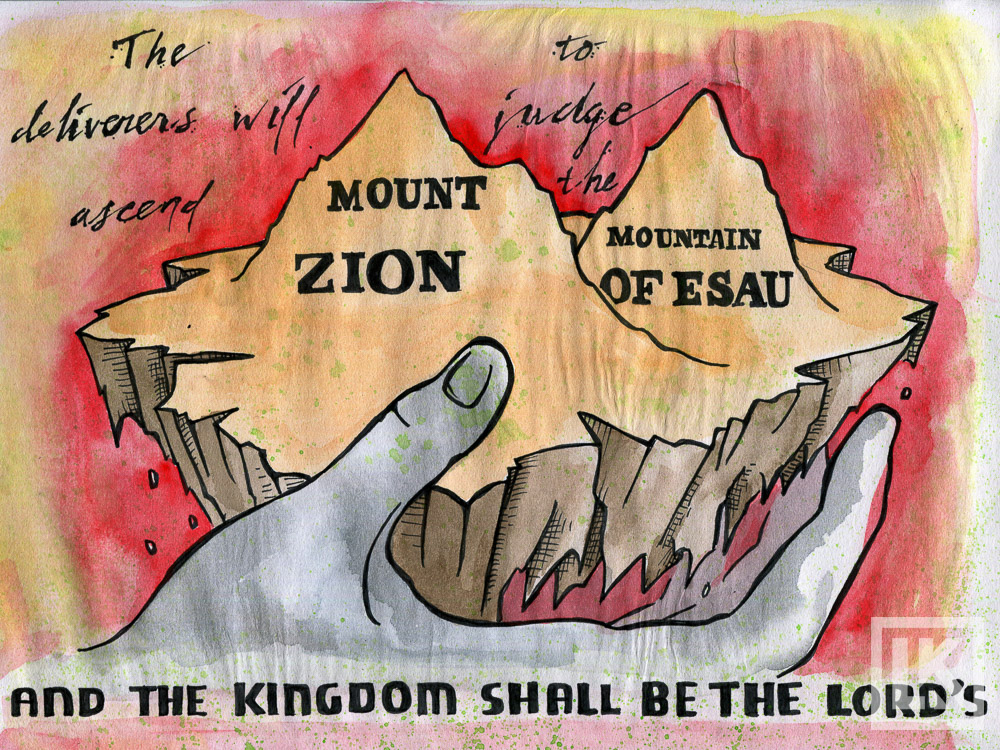 The
deliverers will
ascend
MOUNT
ZION
to
judge
the
MOUNTAIN
OF ESAU
AND THE KINGDOM SHALL BE THE LORD'S